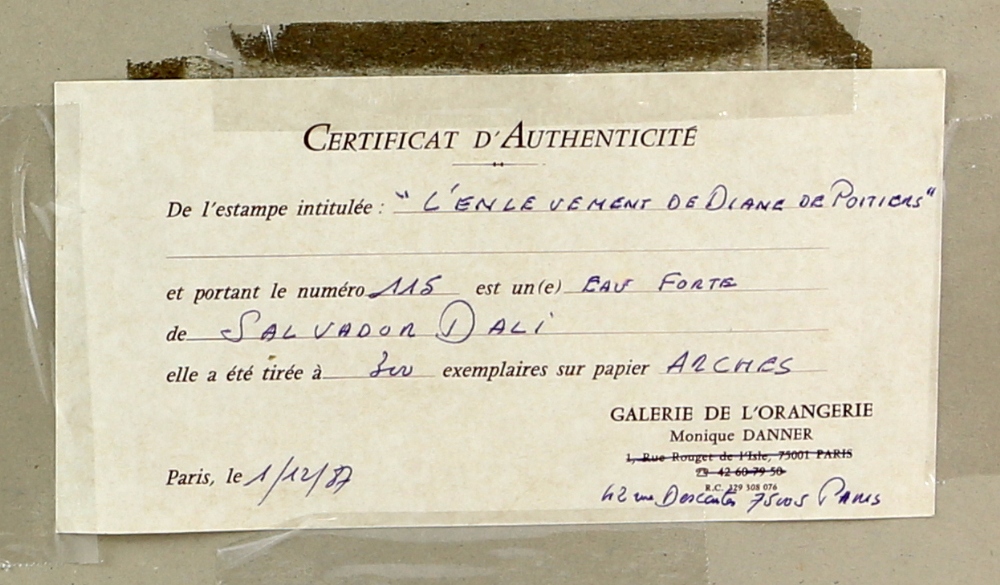 CERTIFICAT D'AUTHENTICITÉ
De l'estampe intitulée : "L'ENLEVEMENT DE DIANE DE POITIERS"
et portant le numéro 115 est un(e) EAU FORTE
de SALVADOR DALI
elle a été tirée à 300 exemplaires sur papier ARCHES
GALERIE DE L'ORANGERIE
Monique DANNER
1, Rue Rouget de l'Isle, 75001 PARIS
☎ 42 60 79 50
R.C. 329 308 076
Paris, le 1/12/87
42 rue Descartes 75005 PARIS